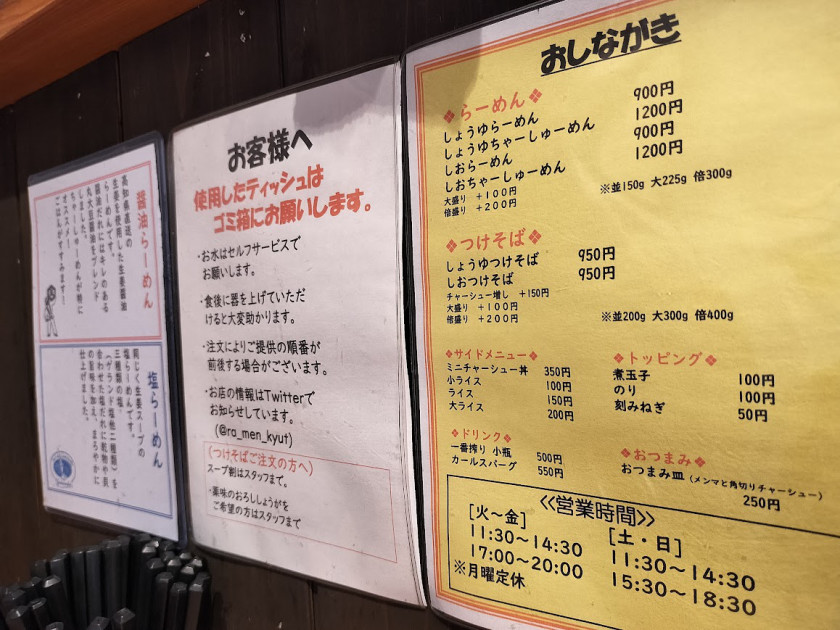 醤油らーめん
高知県直送の
生姜を使用した生姜醤油
らーめんです。
醤油だれにはキレのある
丸大豆醤油をブレンド
しました。
ちゃーしゅーめんが特に
オススメ!
ごはんがすすみます!
塩らーめん
同じく生姜スープの
塩らーめんです。
三種類の塩
(ゲランド塩他二種類)を
合わせた塩だれに乾物や貝
の旨味を加え、まろやかに
仕上げました。
お客様へ
使用したティッシュは
ゴミ箱にお願いします。
・お水はセルフサービスで
お願いします。
・食後に器を上げていただ
けると大変助かります。
・注文によりご提供の順番が
前後する場合がございます。
・お店の情報はTwitterで
お知らせしています。
(@ra_men_kyut)
(つけそばご注文の方へ)
スープ割はスタッフまで。
・薬味のおろししょうがを
ご希望の方はスタッフまで
おしながき
❖らーめん❖
しょうゆらーめん 900円
しょうゆちゃーしゅーめん 1200円
しおらーめん 900円
しおちゃーしゅーめん 1200円
大盛り +100円
倍盛り +200円
※並150g 大225g 倍300g
❖つけそば❖
しょうゆつけそば 950円
しおつけそば 950円
チャーシュー増し +150円
大盛り +100円
倍盛り +200円
※並200g 大300g 倍400g
❖サイドメニュー❖
ミニチャーシュー丼 350円
小ライス 100円
ライス 150円
大ライス 200円
❖トッピング❖
煮玉子 100円
のり 100円
刻みねぎ 50円
❖ドリンク❖
一番搾り 小瓶 500円
カールスバーグ 550円
❖おつまみ❖
おつまみ皿(メンマと角切りチャーシュー)
250円
<<営業時間>>
[火~金]
11:30~14:30
17:00~20:00
※月曜定休
[土・日]
11:30~14:30
15:30~18:30